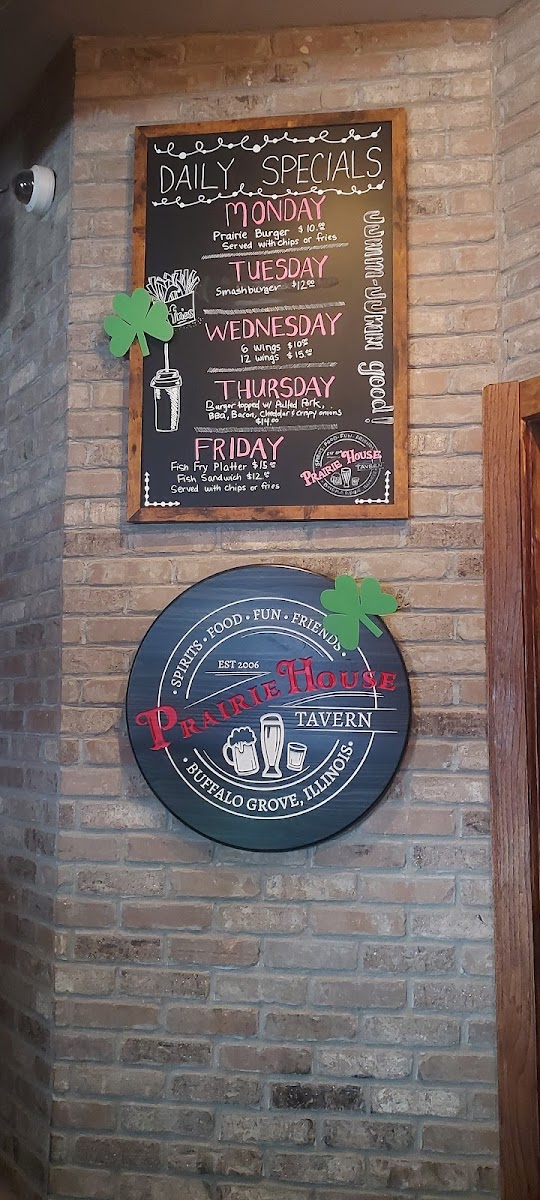 DAILY SPECIALS
MONDAY
Prairie Burger $10.00
Served with chips or fries
TUESDAY
Smashburger $12.00
WEDNESDAY
6 Wings $10.00
12 wings $15.00
THURSDAY
Burger topped w/ Pulled Pork,
BBQ, Bacon, Cheddar & crispy onions
$14.00
FRIDAY
Fish Fry Platter $15.00
Fish Sandwich $12.00
Served with chips or fries
good!
fries
PRAIRIE HOUSE
TAVERN
SPIRITS • FOOD • FUN • FRIENDS
EST 2006
PRAIRIE HOUSE
TAVERN
BUFFALO GROVE, ILLINOIS